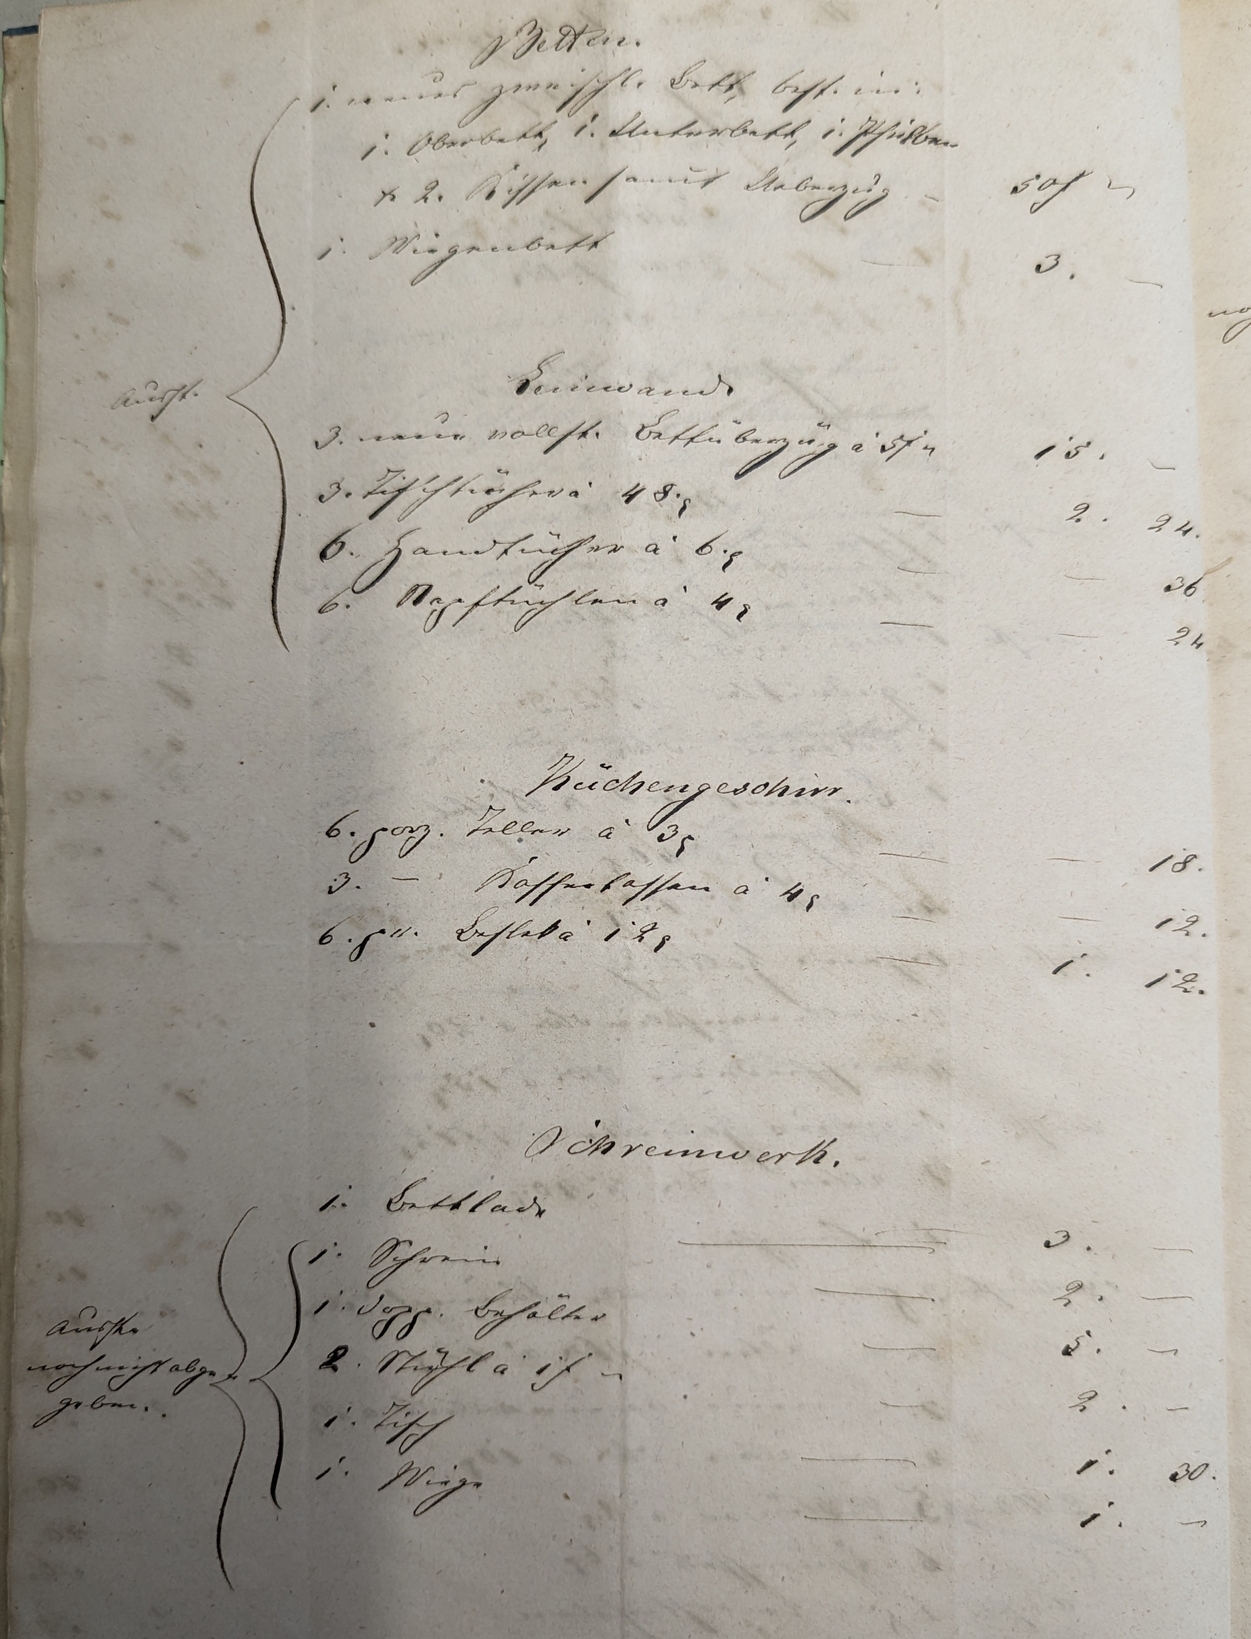 Betten.
1. neues zweischl. Bett, best. in:
1. Oberbett, 1. Unterbett, 1. Pfülben
& 2. Kissen samt Ueberzüg — 50f —
1. Wiegenbett — 3. —
Ausst.
Leinwand
3. neue vollst. Bettüberzüg à 5f — 15. —
3. Tischtücher à 48. — 2. 24.
6. Handtücher à 6. — — 36
6. à 4 — — 24
Küchengeschirr.
6. porz. Teller à 3 — — 18.
3. — Kaffeetassen à 4 — — 12.
6. pr. Besteck à 12 — 1. 12.
Schreinwerk.
1. Bettlade — 3. —
1. Schrein — 2. —
1. dopp. Behälter — 5. —
2. Stühl à 1f — — 2. —
1. Tisch — 1. 30.
1. Wiege — 1. —
noch nicht abge-
geben.